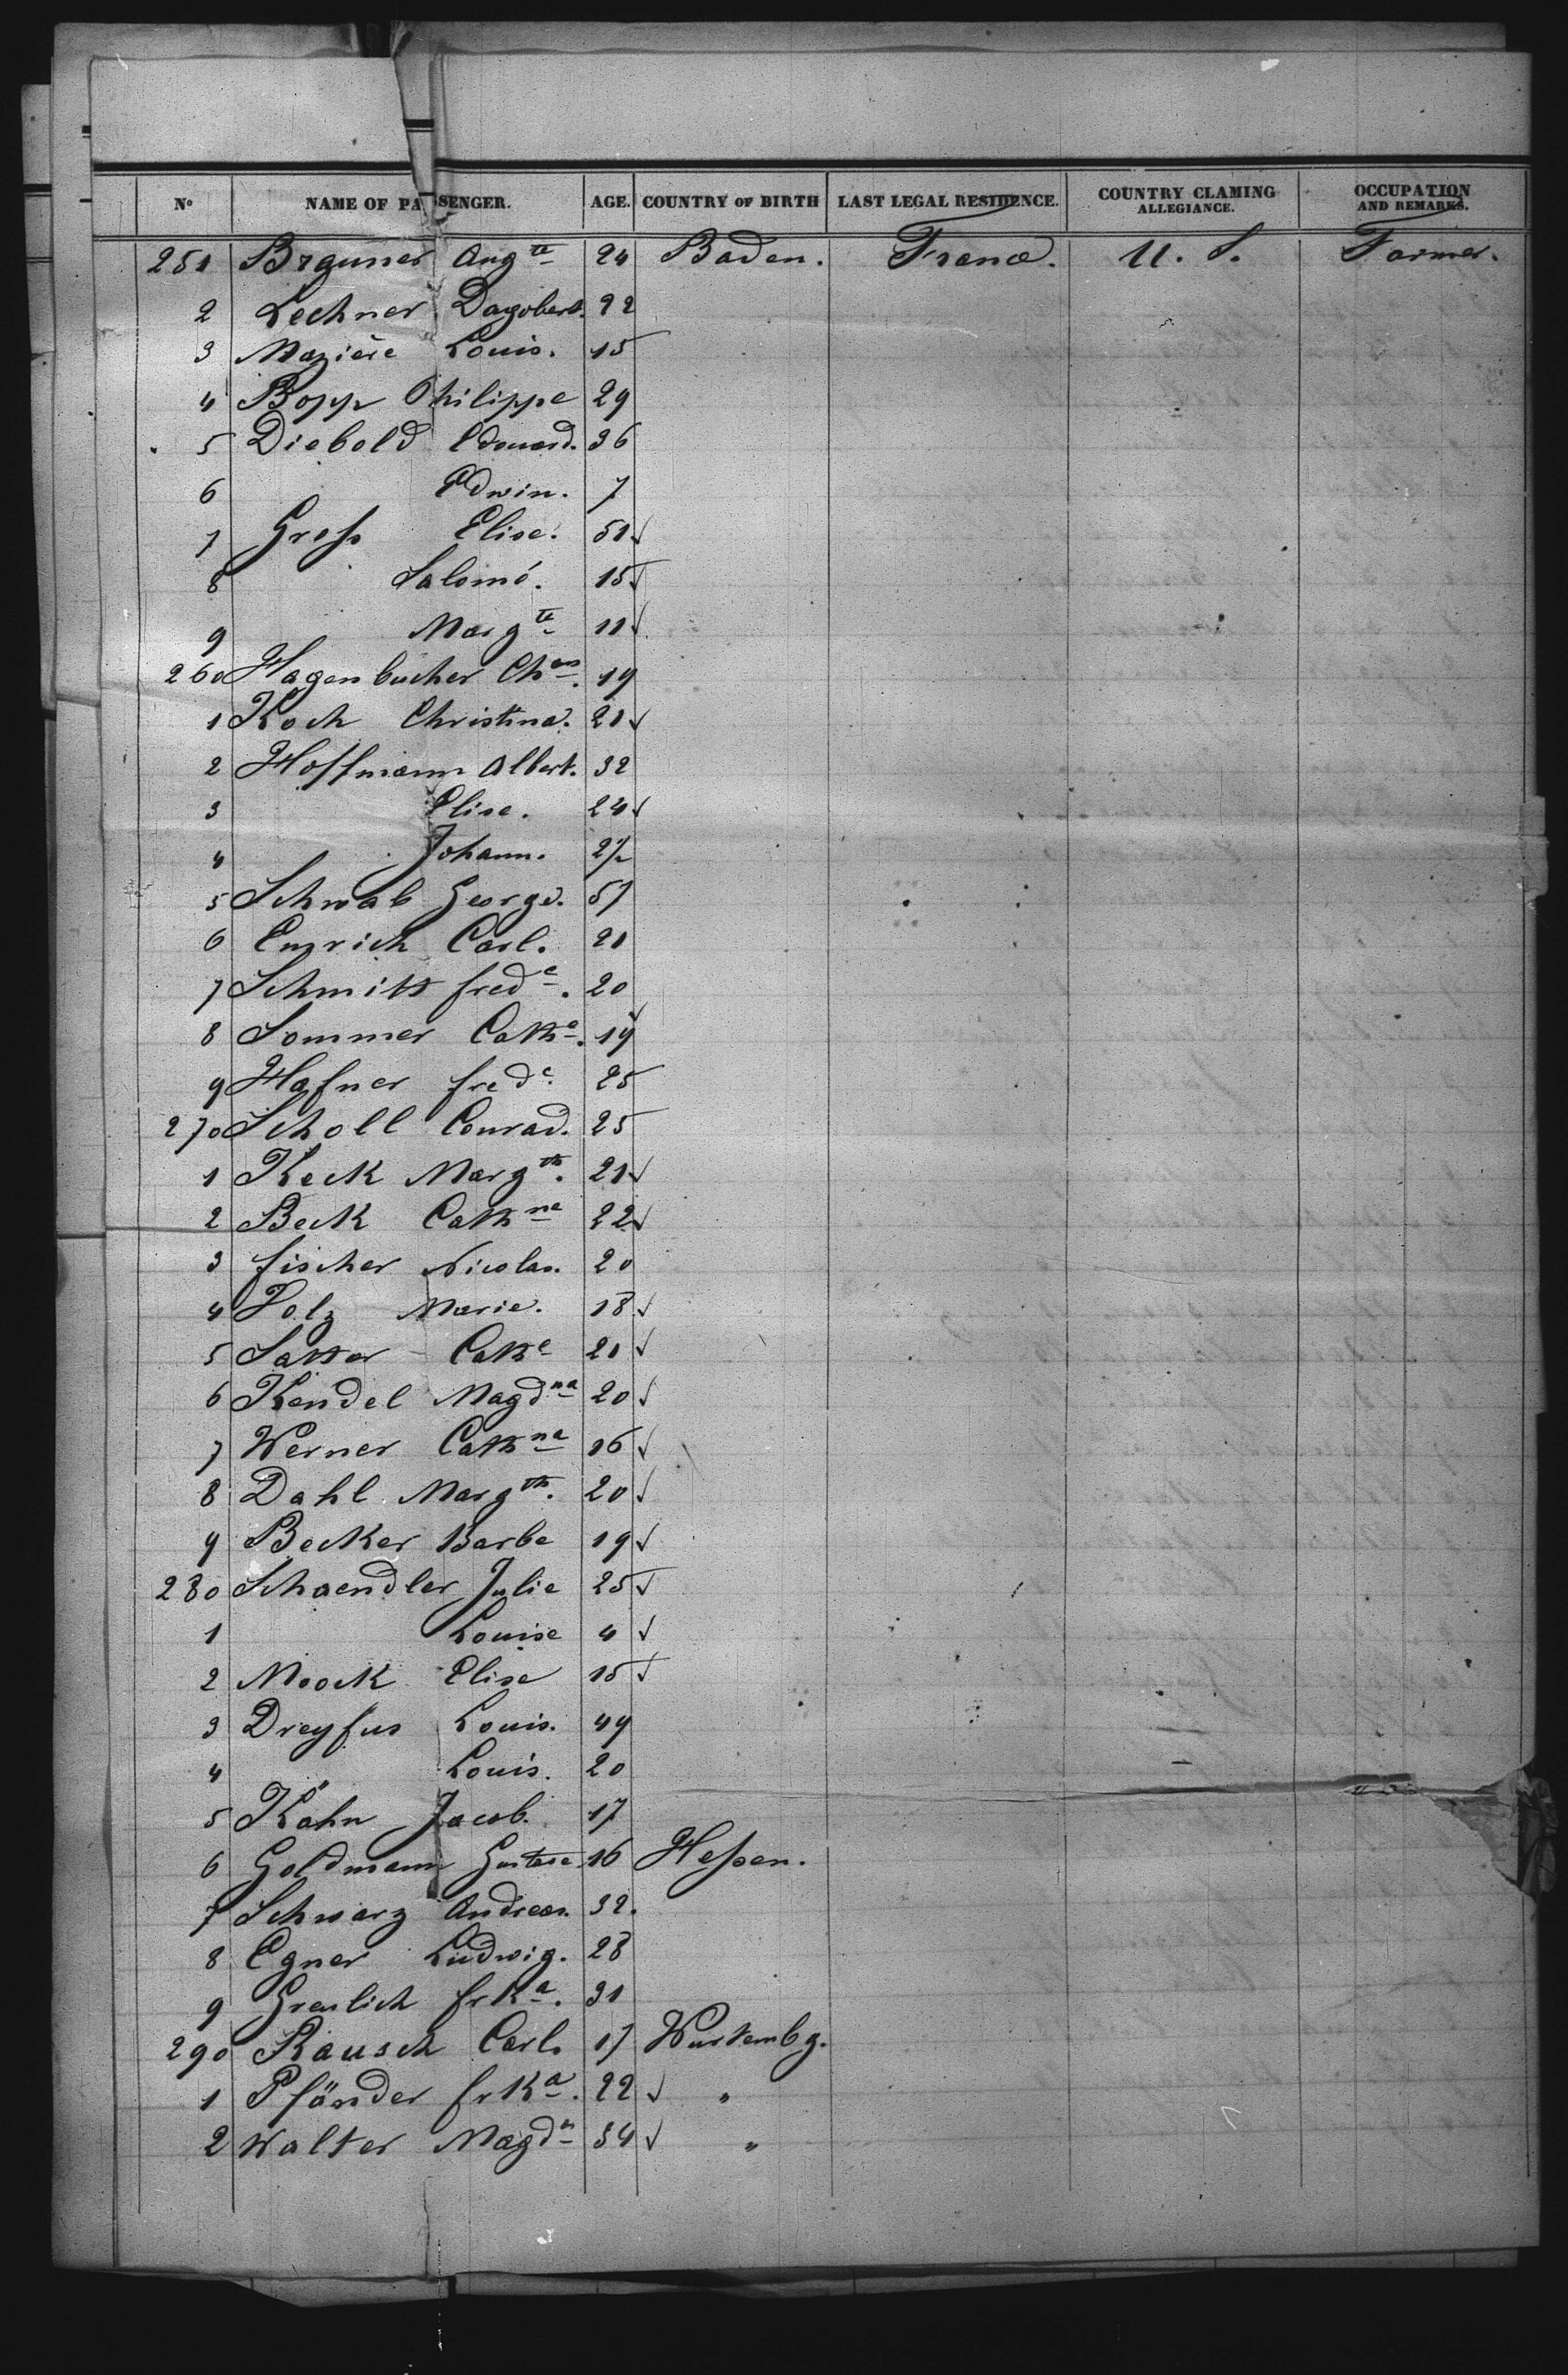 No NAME OF PASSENGER. AGE. COUNTRY OF BIRTH LAST LEGAL RESIDENCE. COUNTRY CLAMING ALLEGIANCE. OCCUPATION AND REMARKS.
251 Brauner Augte 24 Baden. France. U. S. Farmer.
2 Lechner Dagobert. 22
3 Mazière Louis. 15
4 Bopp Philippe 29
5 Diebold Edouard. 36
6 Edwin. 7
7 Gress Elise. 51 √
8 Salomé. 15 √
9 Margte 11 √
260 Hagenbucher Chas. 19
1 Koch Christina. 21 √
2 Hoffmann Albert. 32
3 Elise. 24 √
4 Johann.
5 Schwab George. 57
6 Emrich Carl. 21
7 Schmitt frede. 20
8 Sommer Cathe. 19 √
9 Hafner frede. 25
270 Scholl Conrad. 25
1 Keck Margth. 21 √
2 Beck Cathne 22 √
3 fischer Nicolas. 20
4 Folz Marie. 18 √
5 Satter Cathe 21 √
6 Kendel Magdna 20 √
7 Werner Cathne 16 √
8 Dahl Margth. 20 √
9 Becker Barbe 19 √
280 Schaendler Julie 25 √
1 Louise 4 √
2 Moock Elise 15 √
3 Dreyfus Louis. 49
4 " Louis. 20
5 Kahn Jacob. 17
6 Goldmann Gustave 16 Hessen.
7 Schwarz Andreas. 32.
8 Egner Ludwig. 28
9 Greulich frka. 31
290 Rausch Carl. 17 Wurtembg.
1 Pfänder frka. 22 √ "
2 Walter Magdn 34 √ "